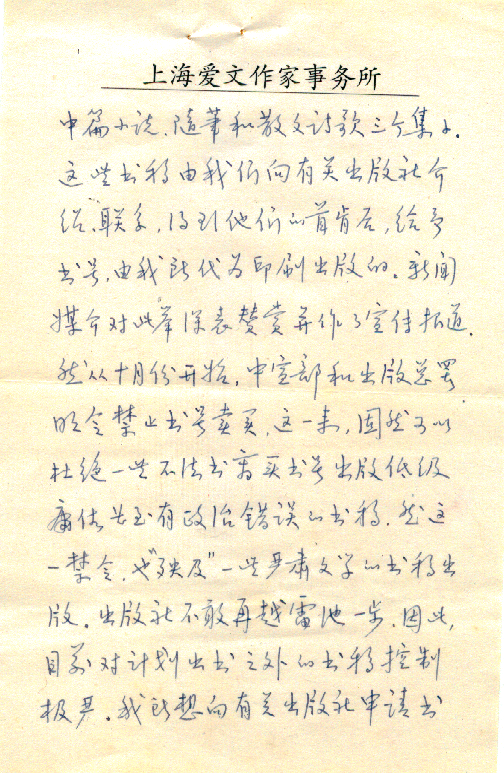 上海爱文作家事务所
中篇小说、随笔和散文诗歌三个集子.
这些书稿由我们向有关出版社介
绍、联系,得到他们的首肯后,给予
书号,由我所代为印刷出版的。新闻
媒介对此举深表赞赏并作了宣传报道.
然从十月份开始,中宣部和出版总署
明令禁止书号卖买,这一来,固然可以
杜绝一些不法书商买书号出版低级
庸俗甚至有政治错误的书稿,然这
一禁令,也“殃及”一些严肃文学的书稿出
版。出版社不敢再越雷池一步,因此,
目前对计划出书之外的书稿控制
极严。我所想向有关出版社申请书